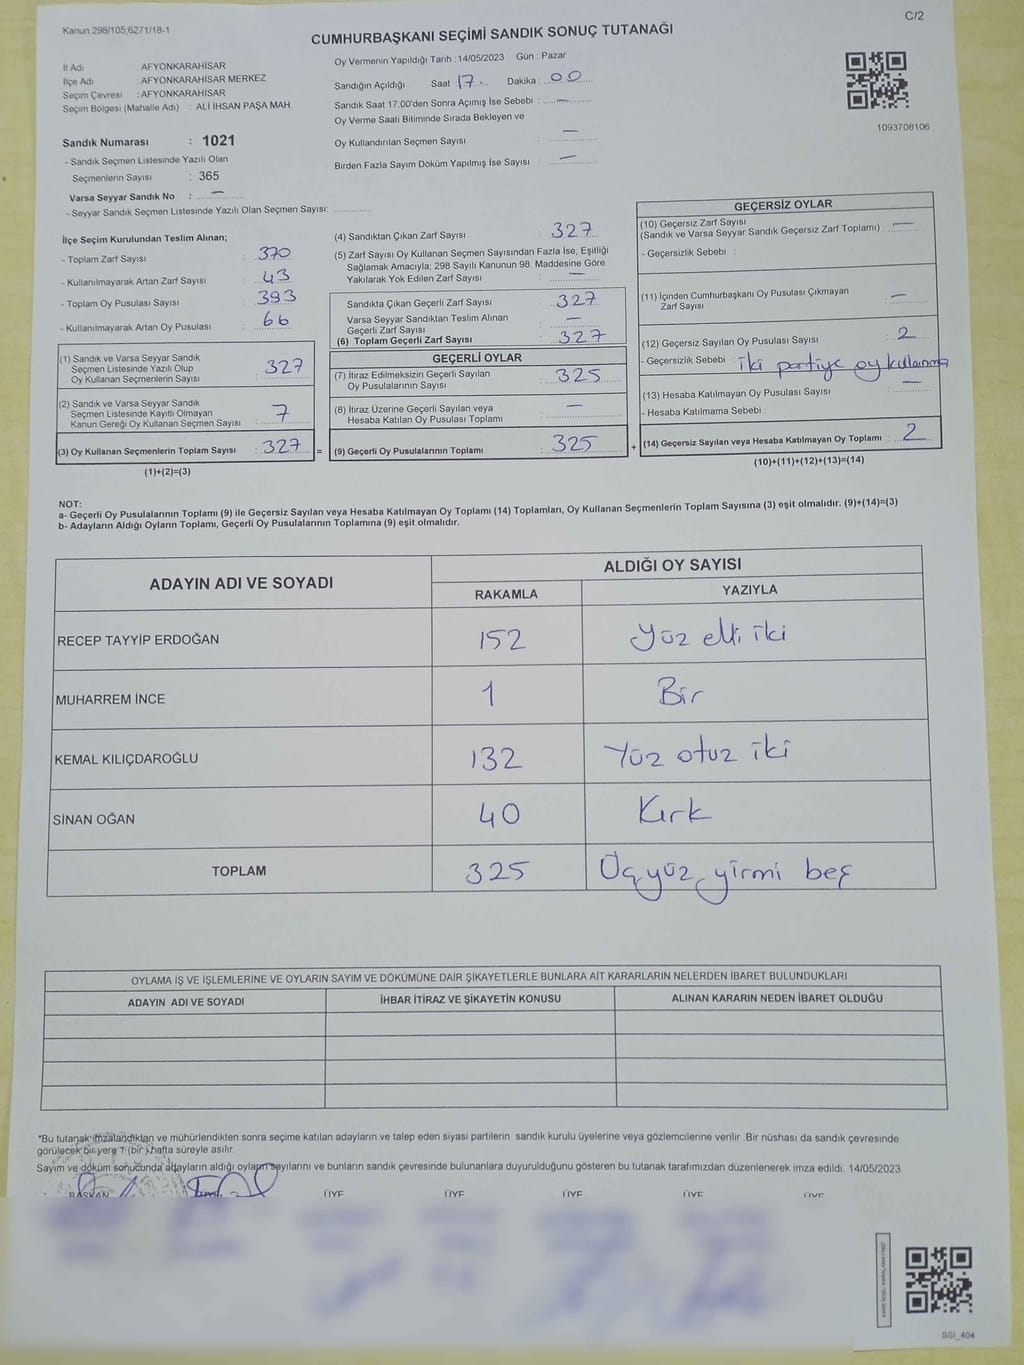 Kanun.298/105;6271/18-1
C/2
CUMHURBAŞKANI SEÇİMİ SANDIK SONUÇ TUTANAĞI
İl Adı : AFYONKARAHİSAR
İlçe Adı : AFYONKARAHİSAR MERKEZ
Seçim Çevresi : AFYONKARAHİSAR
Seçim Bölgesi (Mahalle Adı) : ALİ İHSAN PAŞA MAH.
Sandık Numarası : 1021
- Sandık Seçmen Listesinde Yazılı Olan
Seçmenlerin Sayısı : 365
Varsa Seyyar Sandık No : —
- Seyyar Sandık Seçmen Listesinde Yazılı Olan Seçmen Sayısı:
Oy Vermenin Yapıldığı Tarih : 14/05/2023 Gün : Pazar
Sandığın Açıldığı Saat : 17 Dakika : 00
Sandık Saat 17.00'den Sonra Açımış İse Sebebi : —
Oy Verme Saati Bitiminde Sırada Bekleyen ve
Oy Kullandırılan Seçmen Sayısı : —
Birden Fazla Sayım Döküm Yapılmış İse Sayısı : —
1093708106
İlçe Seçim Kurulundan Teslim Alınan;
- Toplam Zarf Sayısı : 370
- Kullanılmayarak Artan Zarf Sayısı : 43
- Toplam Oy Pusulası Sayısı : 393
- Kullanılmayarak Artan Oy Pusulası : 66
(1) Sandık ve Varsa Seyyar Sandık
Seçmen Listesinde Yazılı Olup
Oy Kullanan Seçmenlerin Sayısı : 327
(2) Sandık ve Varsa Seyyar Sandık
Seçmen Listesinde Kayıtlı Olmayan
Kanun Gereği Oy Kullanan Seçmen Sayısı : 7
(3) Oy Kullanan Seçmenlerin Toplam Sayısı : 327 =
(1)+(2)=(3)
(4) Sandıktan Çıkan Zarf Sayısı : 327
(5) Zarf Sayısı Oy Kullanan Seçmen Sayısından Fazla İse, Eşitliği
Sağlamak Amacıyla; 298 Sayılı Kanunun 98. Maddesine Göre
Yakılarak Yok Edilen Zarf Sayısı : —
Sandıkta Çıkan Geçerli Zarf Sayısı : 327
Varsa Seyyar Sandıktan Teslim Alınan
Geçerli Zarf Sayısı : —
(6) Toplam Geçerli Zarf Sayısı : 327
GEÇERLİ OYLAR
(7) İtiraz Edilmeksizin Geçerli Sayılan
Oy Pusulalarının Sayısı : 325
(8) İtiraz Üzerine Geçerli Sayılan veya
Hesaba Katılan Oy Pusulası Toplamı : —
(9) Geçerli Oy Pusulalarının Toplamı : 325 +
GEÇERSİZ OYLAR
(10) Geçersiz Zarf Sayısı
(Sandık ve Varsa Seyyar Sandık Geçersiz Zarf Toplamı) : —
- Geçersizlik Sebebi :
(11) İçinden Cumhurbaşkanı Oy Pusulası Çıkmayan
Zarf Sayısı : —
(12) Geçersiz Sayılan Oy Pusulası Sayısı : 2
- Geçersizlik Sebebi : iki partiye oy kullanma
(13) Hesaba Katılmayan Oy Pusulası Sayısı : —
- Hesaba Katılmama Sebebi :
(14) Geçersiz Sayılan veya Hesaba Katılmayan Oy Toplamı : 2
(10)+(11)+(12)+(13)=(14)
NOT:
a- Geçerli Oy Pusulalarının Toplamı (9) ile Geçersiz Sayılan veya Hesaba Katılmayan Oy Toplamı (14) Toplamları, Oy Kullanan Seçmenlerin Toplam Sayısına (3) eşit olmalıdır. (9)+(14)=(3)
b- Adayların Aldığı Oyların Toplamı, Geçerli Oy Pusulalarının Toplamına (9) eşit olmalıdır.
ADAYIN ADI VE SOYADI
ALDIĞI OY SAYISI
RAKAMLA YAZIYLA
RECEP TAYYİP ERDOĞAN 152 Yüz elli iki
MUHARREM İNCE 1 Bir
KEMAL KILIÇDAROĞLU 132 Yüz otuz iki
SİNAN OĞAN 40 Kırk
TOPLAM 325 Üçyüz yirmi beş
OYLAMA İŞ VE İŞLEMLERİNE VE OYLARIN SAYIM VE DÖKÜMÜNE DAİR ŞİKAYETLERLE BUNLARA AİT KARARLARIN NELERDEN İBARET BULUNDUKLARI
ADAYIN ADI VE SOYADI İHBAR İTİRAZ VE ŞİKAYETİN KONUSU ALINAN KARARIN NEDEN İBARET OLDUĞU
*Bu tutanak imzalandıktan ve mühürlendikten sonra seçime katılan adayların ve talep eden siyasi partilerin sandık kurulu üyelerine veya gözlemcilerine verilir. Bir nüshası da sandık çevresinde
görülecek bir yere 1 (bir) hafta süreyle asılır.
Sayım ve döküm sonucunda adayların aldığı oyların sayılarını ve bunların sandık çevresinde bulunanlara duyurulduğunu gösteren bu tutanak tarafımızdan düzenlenerek imza edildi. 14/05/2023
BAŞKAN ÜYE ÜYE ÜYE ÜYE ÜYE ÜYE
SSI_404